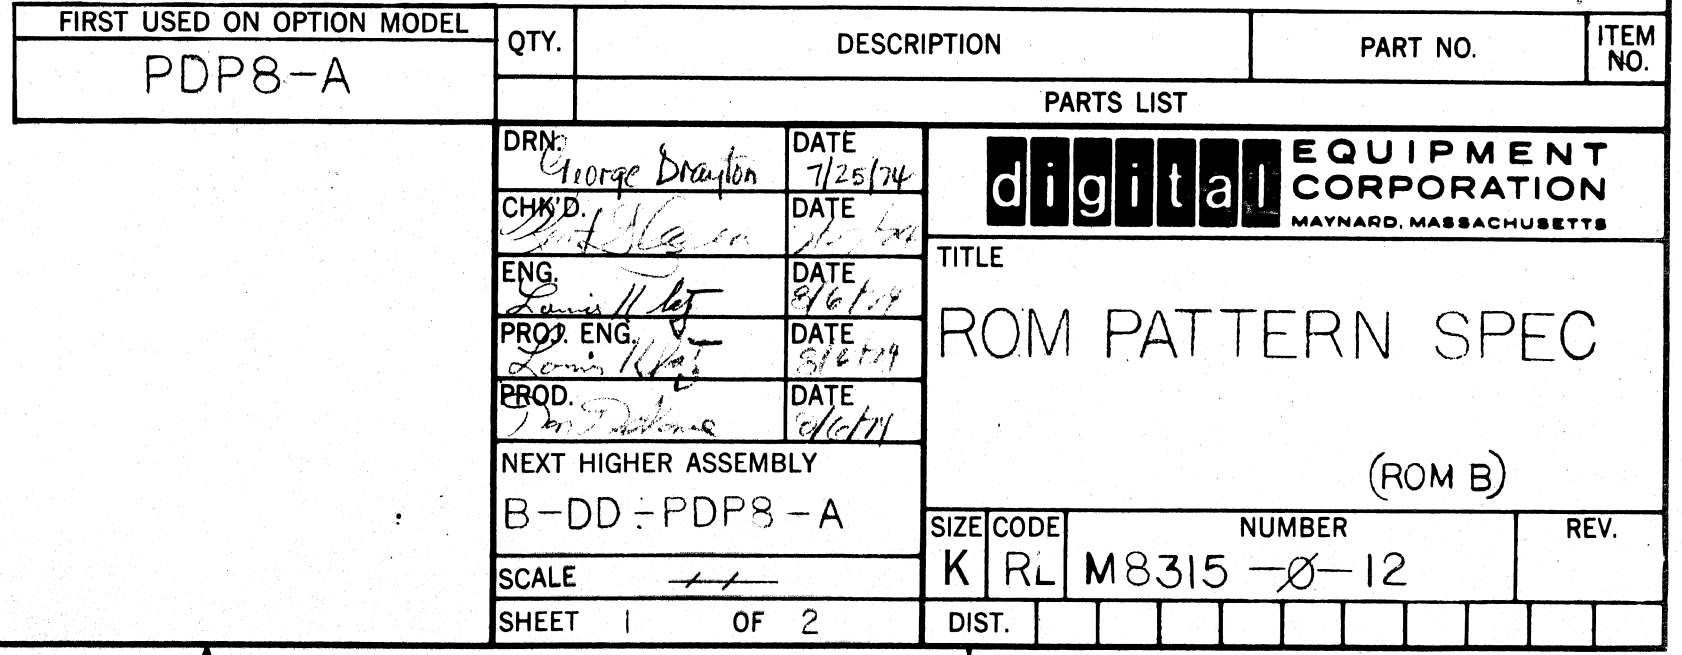 FIRST USED ON OPTION MODEL
PDP8-A
QTY.
DESCRIPTION
PART NO.
ITEM
NO.
PARTS LIST
DRN.
George Drayton
DATE
7/25/74
CHK'D.
DATE
ENG.
Louis
DATE
8/6/74
PROJ. ENG.
Louis
DATE
8/6/74
PROD.
DATE
8/6/74
NEXT HIGHER ASSEMBLY
B-DD-PDP8-A
SCALE
SHEET 1 OF 2
digital
EQUIPMENT
CORPORATION
MAYNARD, MASSACHUSETTS
TITLE
ROM PATTERN SPEC
(ROM B)
SIZE
K
CODE
RL
NUMBER
M8315-Ø-12
REV.
DIST.